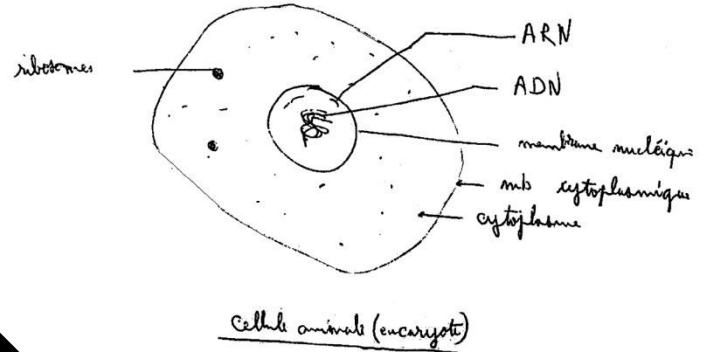 ARN
ribosomes
ADN
membrane nucléique
mb cytoplasmique
cytoplasme
Cellule animale (eucaryote)